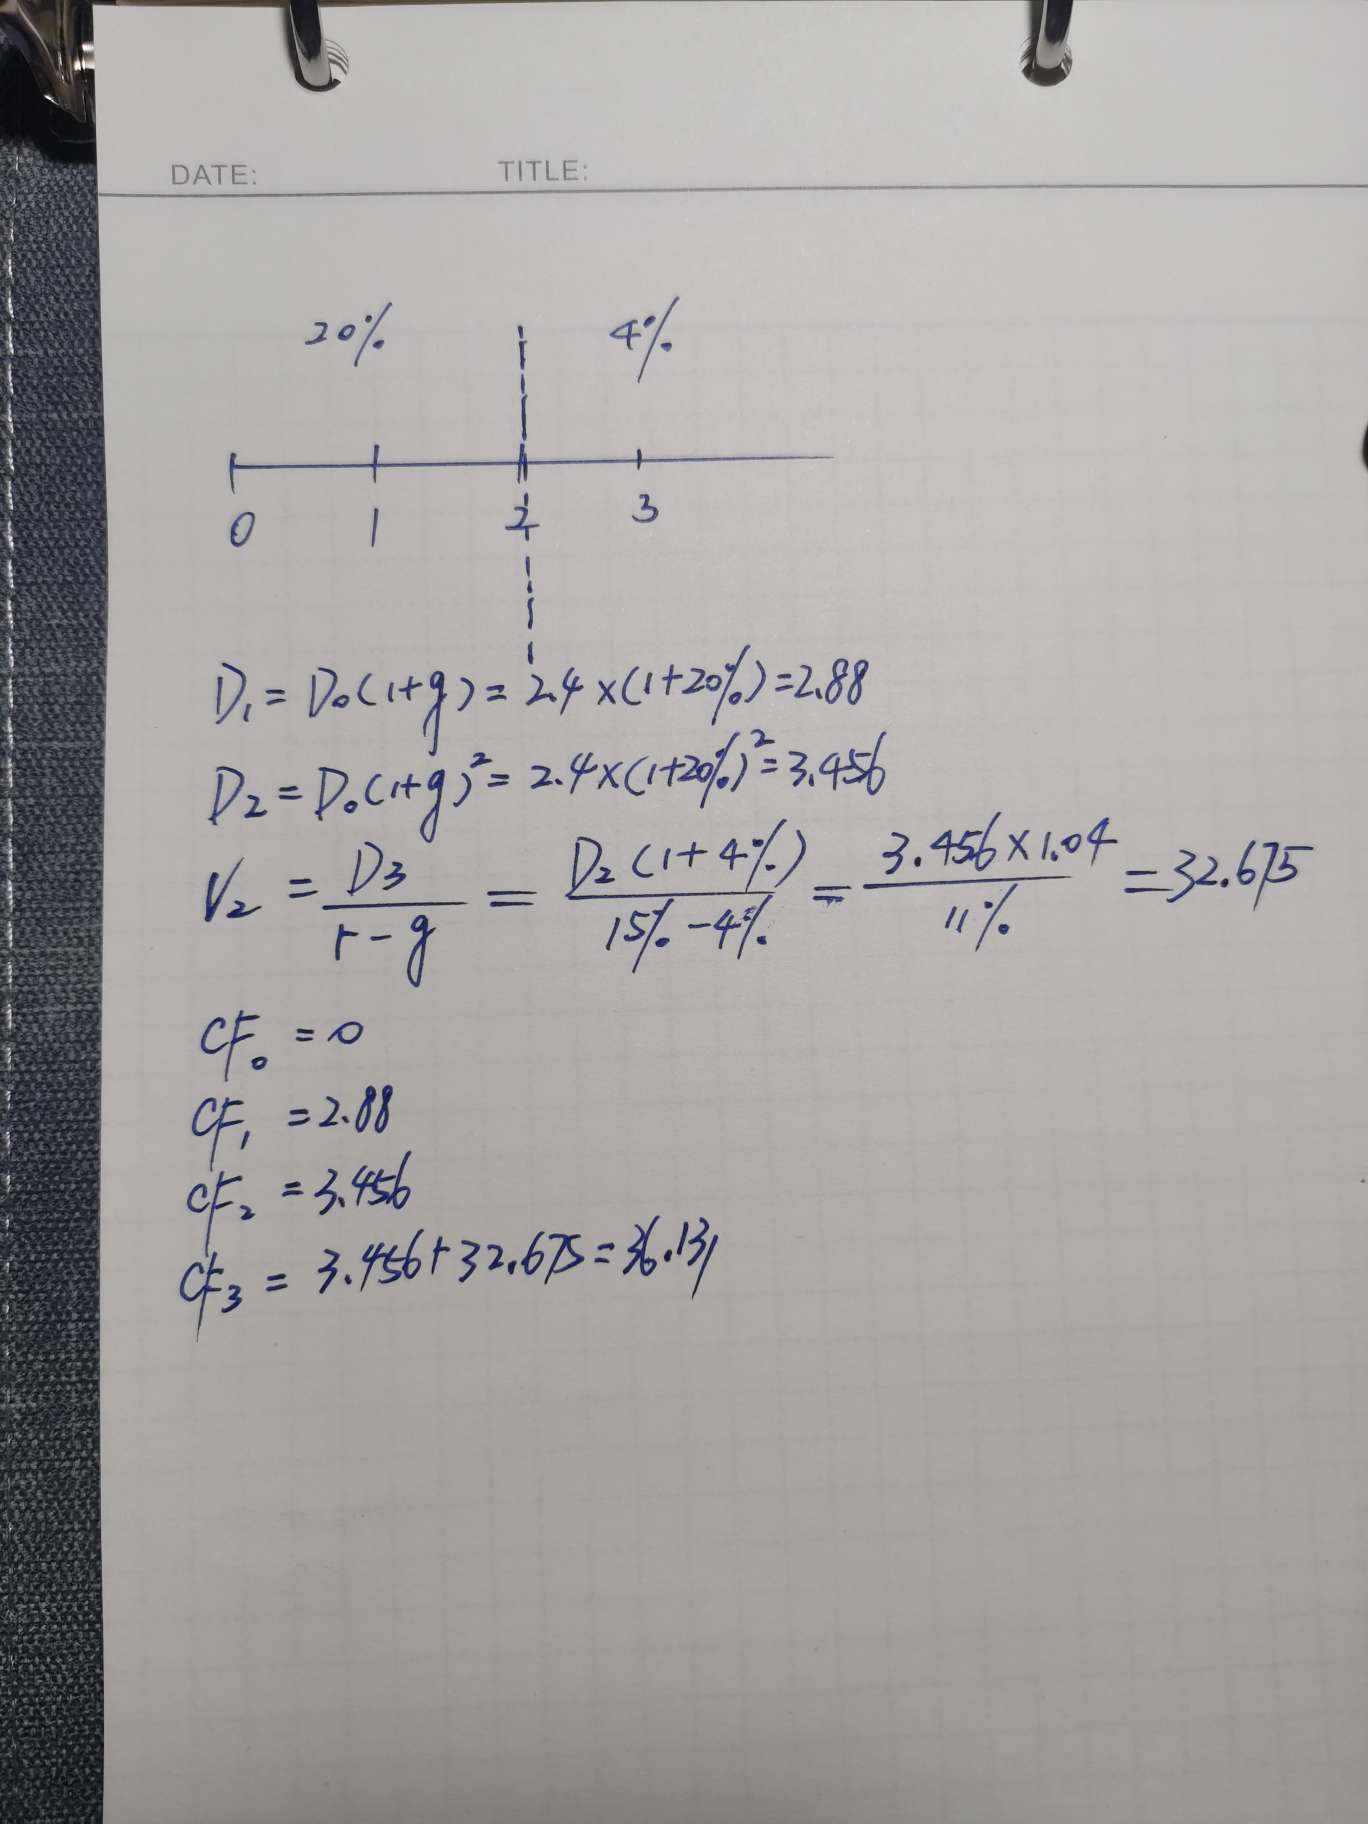 DATE: TITLE:
20% 4%
0 1 2 3
D₁ = D₀(1+g) = 2.4×(1+20%)=2.88
D₂ = D₀(1+g)² = 2.4×(1+20%)²=3.456
V₂ = D₃/(r-g) = D₂(1+4%)/(15%-4%) = 3.456×1.04/11% = 32.675
CF₀ = 0
CF₁ = 2.88
CF₂ = 3.456
CF₃ = 3.456+32.675=36.131